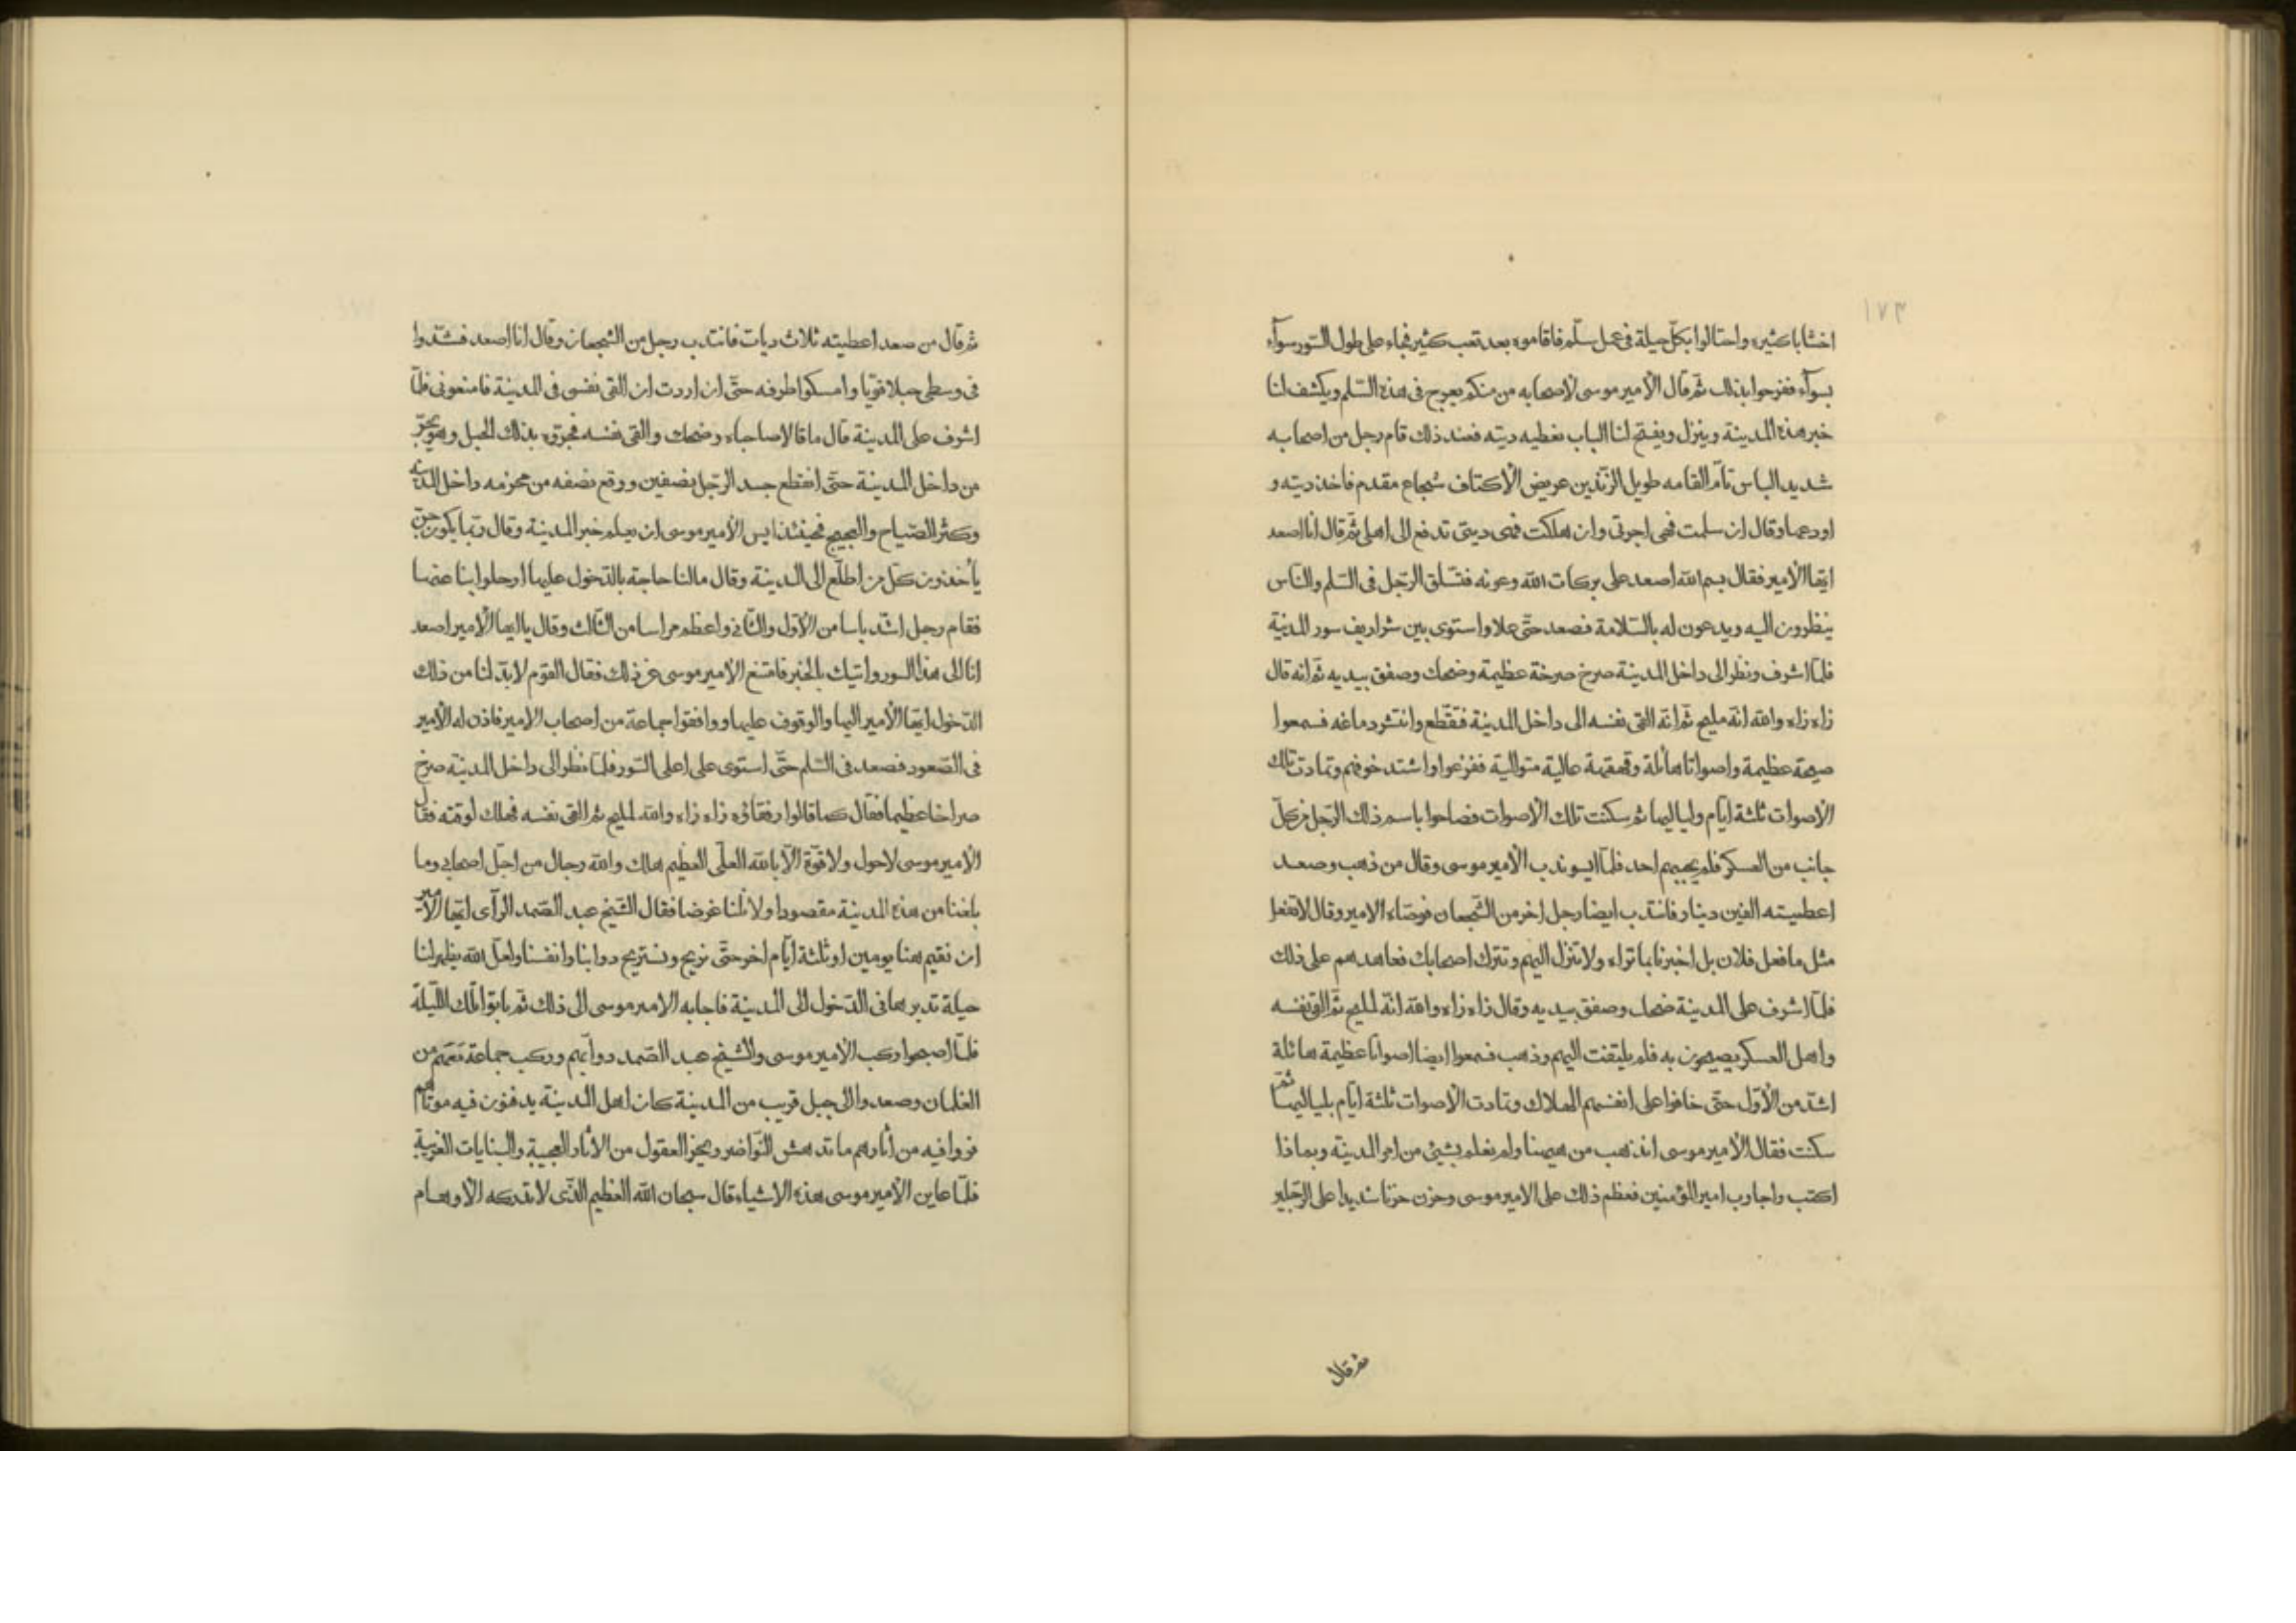 ١٧٣
اخشابا كثيرة واحتالوا بكلّ حيلة فى عمل سلّم فاقاموه بعد تعب كثير فجاء على طول السّور سوآء
بسوآء ففرحوا بذلك ثمّ قال الأمير موسى لأصحابه من منكم يعرج فى هذه السّلم ويكشف لنا
خبر هذه المدينة وينزل ويفتح لنا الباب نعطيه ديته فعند ذلك قام رجل من اصحابه
شديد الباس تآمّ القامه طويل الزّندين عريض الأكتاف شجاع مقدم فاخذ ديته و
اودعها وقال ان سلمت فهى اجرتى وان هلكت فهى ديتى تدفع الى اهلى ثمّ قال أنا اصعد
ايّها الأمير فقال بسم الله اصعد على بركات الله وعونه فتسّلق الرّجل فى السّلم والنّاس
ينظرون اليه ويدعون له بالسّلامة فصعد حتّى علا واستوى بين شراريف سور المدينة
فلمّا اشرف ونظر الى داخل المدينة صرخ صرخة عظيمة وضحك وصفق بيديه ثم انه قال
زاه زاه والله انّه مليح ثمّ انّه القى نفسه الى داخل المدينة فتقطّع وانتشر دماغه فسمعوا
صيحة عظيمة واصواتا هائلة وقهقهة عالية متوالية ففزعوا واشتد خوفهم وتمادت تلك
الأصوات ثلثة ايّام ولياليها ثم سكنت تلك الأصوات فصاحوا باسم ذلك الرّجل من كلّ
جانب من العسكر فلم يجيبهم احد فلمّا ايسو ندب الأمير موسى وقال من ذهب وصعد
اعطيته الفين دينار فانتدب ايضا رجل اخر من الشّجعان فوصّاه الامير وقال لا تفعل
مثل ما فعل فلان بل اخبرنا بما تراه ولا تنزل اليهم وتترك اصحابك فعاهدهم على ذلك
فلمّا اشرف على المدينة ضحك وصفق بيديه وقال زاه زاه والله انّه لمليح ثمّ القى نفسه
واهل العسكر يصيحون به فلم يليتفت اليهم وذهب فسمعوا ايضا اصواتا عظيمة هائلة
اشدّ من الأوّل حتّى خافوا على انفسهم الهلاك وتمادت الأصوات ثلثة ايّام بلياليها ثم
سكنت فقال الأمير موسى انذهب من هيهنا ولم نعلم بشيئ من امر المدينة وبماذا
اكتب واجاوب امير المؤمنين فعظم ذلك على الامير موسى وحزن حزنا شديدا على الرّجلين
ثم قال
ثم قال من صعد اعطيته ثلاث ديات فانتدب رجل من الشجعان وقال انا اصعد فشدّوا
فى وسطى حبلا قويّا وامسكوا طرفه حتّى ان اردت ان القى نفسى فى المدينة فامنعونى فلمّا
اشرف على المدينة قال ما قالا صاحباه وضحك والقى نفسه فجرّوه بذلك الحبل وهو يجرّ
من داخل المدينة حتّى انقطع جسد الرّجل بنصفين ووقع نصفه من محزمه داخل المدينة
وكثر الصّياح والعجيج فحينئذ ايس الأمير موسى ان يعلم خبر المدينة وقال ربّما يكون جنّ
يأخذون كلّ من اطّلع الى المدينة وقال مالنا حاجة بالدّخول عليها ارحلوا بنا عنها
فقام رجل اشدّ باسا من الأوّل والثّانى واعظم مراسا من الثّالث وقال يا ايها الأمير اصعد
انا الى هذا السور واتيك بالخبر فامتنع الأمير موسى عن ذلك فقال القوم لا بدّ لنا من ذلك
الدّخول ايّها الأمير اليها والوقوف عليها ووافقوا جماعة من اصحاب الامير فاذن له الأمير
فى الصّعود فصعد فى السّلم حتّى استوى على اعلى السّور فلمّا نظر الى داخل المدينة صرخ
صراخا عظيما فقال كما قالوا رفقاؤه زاه زاه والله لمليح ثم القى نفسه فهلك لوقته فقال
الأمير موسى لا حول ولا قوّة الّا بالله العلّى العظيم هلك والله رجال من اجلّ اصحابى وما
بلغنا من هذه المدينة مقصودا ولا نلنا غرضا فقال الشّيخ عبد الصّمد الرآى ايّها الأمير
ان نقيم هنا يومين او ثلثة ايّام اخر حتّى نريح ونستريح دوابنا وانفسنا ولعلّ الله يظهر لنا
حيلة تدبرها فى الدّخول الى المدينة فاجابه الامير موسى الى ذلك ثم باتوا تلك اللّيلة
فلمّا اصبحوا ركب الأمير موسى والشّيخ عبد الصّمد دوابّهم وركب جماعة معهم من
الغلمان وصعدوا الى جبل قريب من المدينة كان اهل المدينة يدفنون فيه موتاهم
فروا فيه من آثارهم ما تدهش النّواضر ويحيّر العقول من الآثار العجيبة والبنايات الغريبة
فلمّا عاين الأمير موسى هذه الاشياء قال سبحان الله العظيم الّذى لا تدركه الأوهام